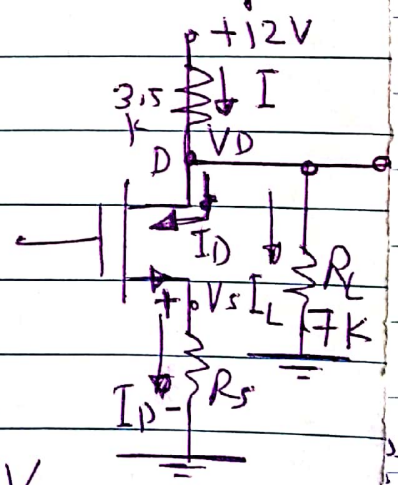 +12V
3.5
K
I
VD
D
ID
+ Vs
IL
RL
7K
ID
-
Rs
V